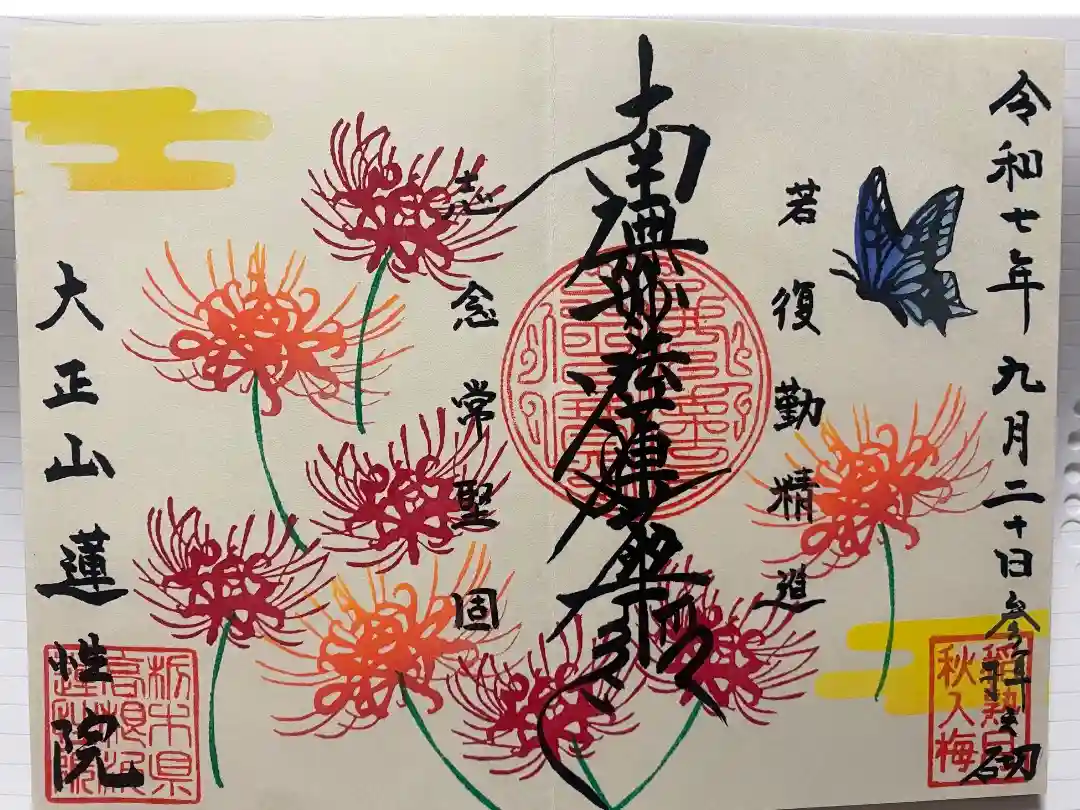 令和七年九月二十日参拝之砌
若復勤精進
南無妙法蓮華経
志念常堅固
大正山蓮性院
秋入梅
栃木県